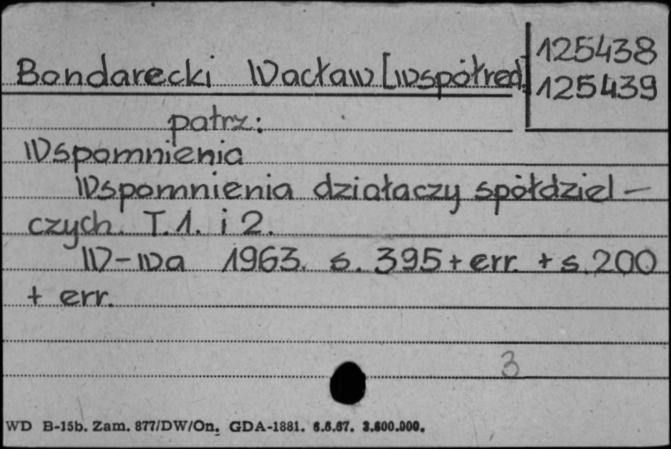 Bondarecki Wacław [współred.]
125438
125439
patrz:
Wspomnienia
Wspomnienia działaczy spółdziel-
czych. T.1. i 2.
W-wa 1963. s. 395 + err. + s. 200
+ err.
3
WD B-15b. Zam. 877/DW/On. GDA-1881. 6.6.67. 3.600.000.